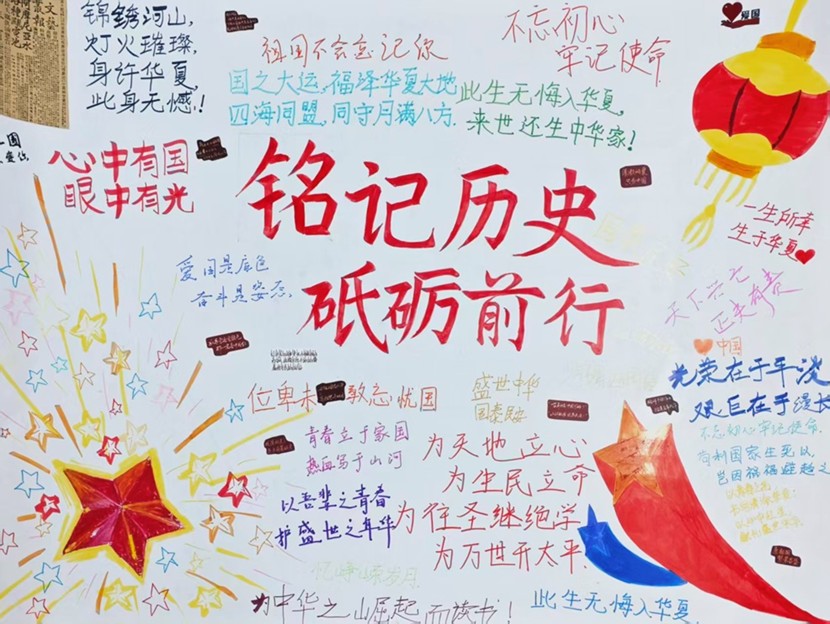 锦锈河山,
灯火璀璨,
身许华夏,
此身无憾!
祖国不会忘记你
不忘初心
牢记使命
爱国
国之大运,福泽华夏大地
四海同盟,同守月满八方.
此生无悔入华夏,
来世还生中华家!
心中有国
眼中有光
铭记历史
砥砺前行
一生所幸
生于华夏
爱国是底色
奋斗是姿态,
天下兴亡
匹夫有责
中国
光荣在于平淡
艰巨在于漫长
不忘初心牢记使命.
苟利国家生死以
岂因祸福避趋之
位卑未敢忘忧国
盛世中华
国泰民安
青春立于家国
热血写于山河
以吾辈之青春
护盛世之年华
为天地立心
为生民立命
为往圣继绝学
为万世开太平.
忆峥嵘岁月
为中华之崛起而读书!
此生无悔入华夏,